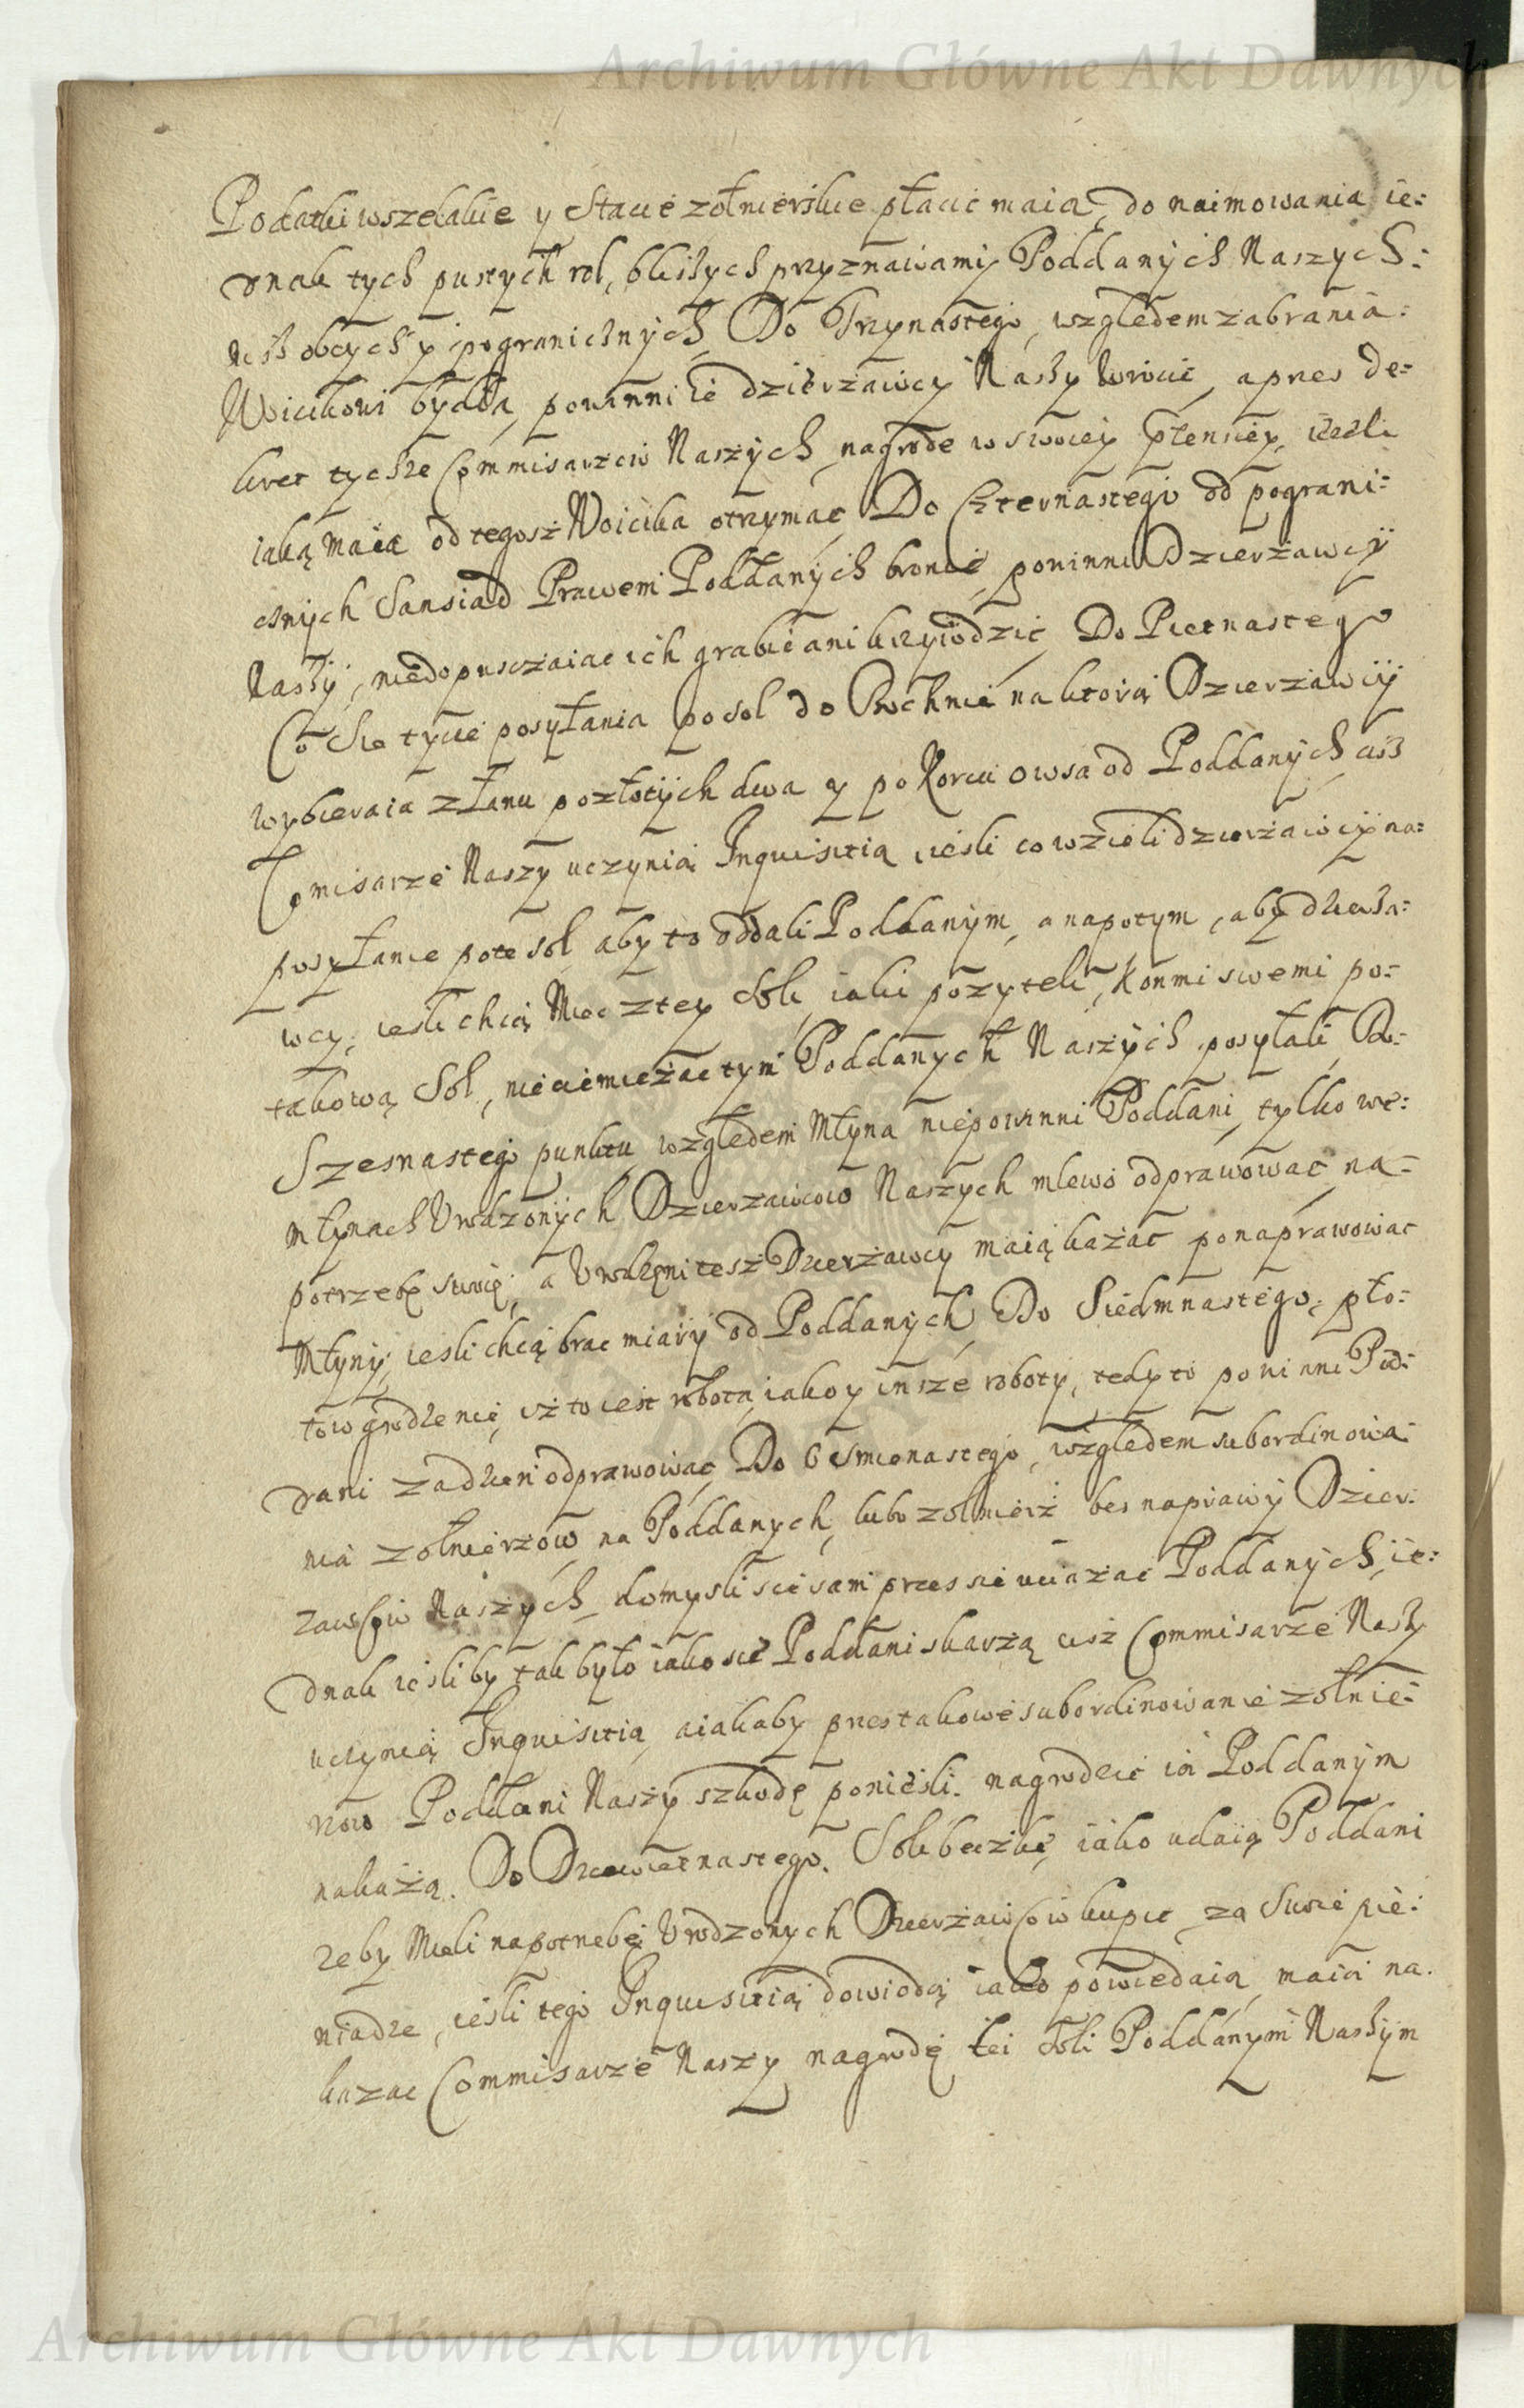 Archiwum Główne Akt Dawnych
Podatki wszelakie y Stacie zołnierskie płacic maią, do naimowania ie:
dnak tych pustych rol, blisszych przyznawamy Poddanych Naszych:
nisz obcych y pogranicznych, Do Trzynastego, względem zabrania:
Woicikowi bydła, powinni ie dzierzawcy Naszy wrocic, a przes de:
kret tychze Commisarzow Naszych nagrode w swoiey ieżeli
iaką maią od tegosz Woicika otrzymac, Do Czternastego od pograni:
cznych Sansiad Prawem Poddanych bronic powinni Dzierzawcy
Naszy, niedopusczaiac ich grabic ani krzywdzic, Do Pietnastego
Co Sie tycze posyłania po sol do Bochnie na ktorą Dzierzawcy
wybieraia z łanu po złotych dwa y po Korcu owsa od Poddanych cisz
Comisarze Naszy uczynią Inquisitią iesli co wzieli dzierzawcy na:
posyłanie po te sol aby to oddali Poddanym, a napotym, aby dzierza:
wcy, iesli chcą Miec z tey Soli iaki pozytek, Konmi swemi po:
takową Sol, nieciemiężac tym Poddanych Naszych posyłali, Do:
Szesnastego punktu względem Młyna niepowinni Poddani, tylko we:
Młynach Urodzonych Dzierzawcow Naszych mlewo odprawowac na:
potrzebę swoię, a Urodzeni tesz Dzierżawcy maią kazac ponaprawowac
Młyny, iesli chcą brac miary od Poddanych, Do Siedmnastego, pło:
tow grodzenie, iż to iest robota iako y insze roboty, tedy to powinni Pod:
dani za dzien odprawowac, Do Osmonastego, względem subordinowa:
nia zołnierzow na Poddanych, lubo zołnierz bes naprawy Dzier:
zawcow Naszych domysli sie sam przes sie uciązac Poddanych, ie:
dnak iesliby tak było iako sie Poddani skarzą cisz Commisarze Naszy
uczynią Inquisitią, a iakąby przes takowe subordinowanie zołnie:
rzow Poddani Naszy szkodę poniesli. nagrodzic ią Poddanym
nakażą. Do Dziewietnastego. Soli beczkę, iako udaią Poddani
zeby Mieli na potrzebę Urodzonych Dzierzawcow kupic za Swoie pie:
niadze, iesli tego Inquisitią dowiodą iako powiedaią, maią na:
kazac Commisarze Naszy nagrodę tei Soli Poddanym Naszym
Archiwum Główne Akt Dawnych